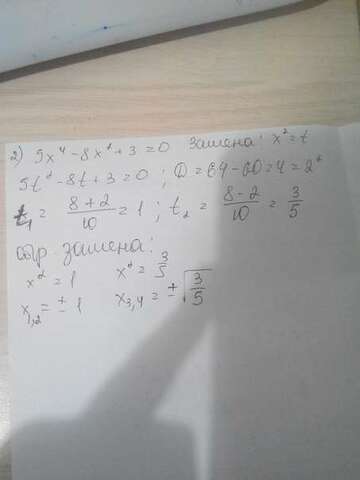 2) 5x⁴ - 8x² + 3 = 0 замена: x² = t
5t² - 8t + 3 = 0 ; D = 64 - 60 = 4 = 2²
t₁ = (8 + 2)/10 = 1 ; t₂ = (8 - 2)/10 = 3/5
обр замена:
x² = 1 x² = 3/5
x₁,₂ = ± 1 x₃,₄ = ± √(3/5)